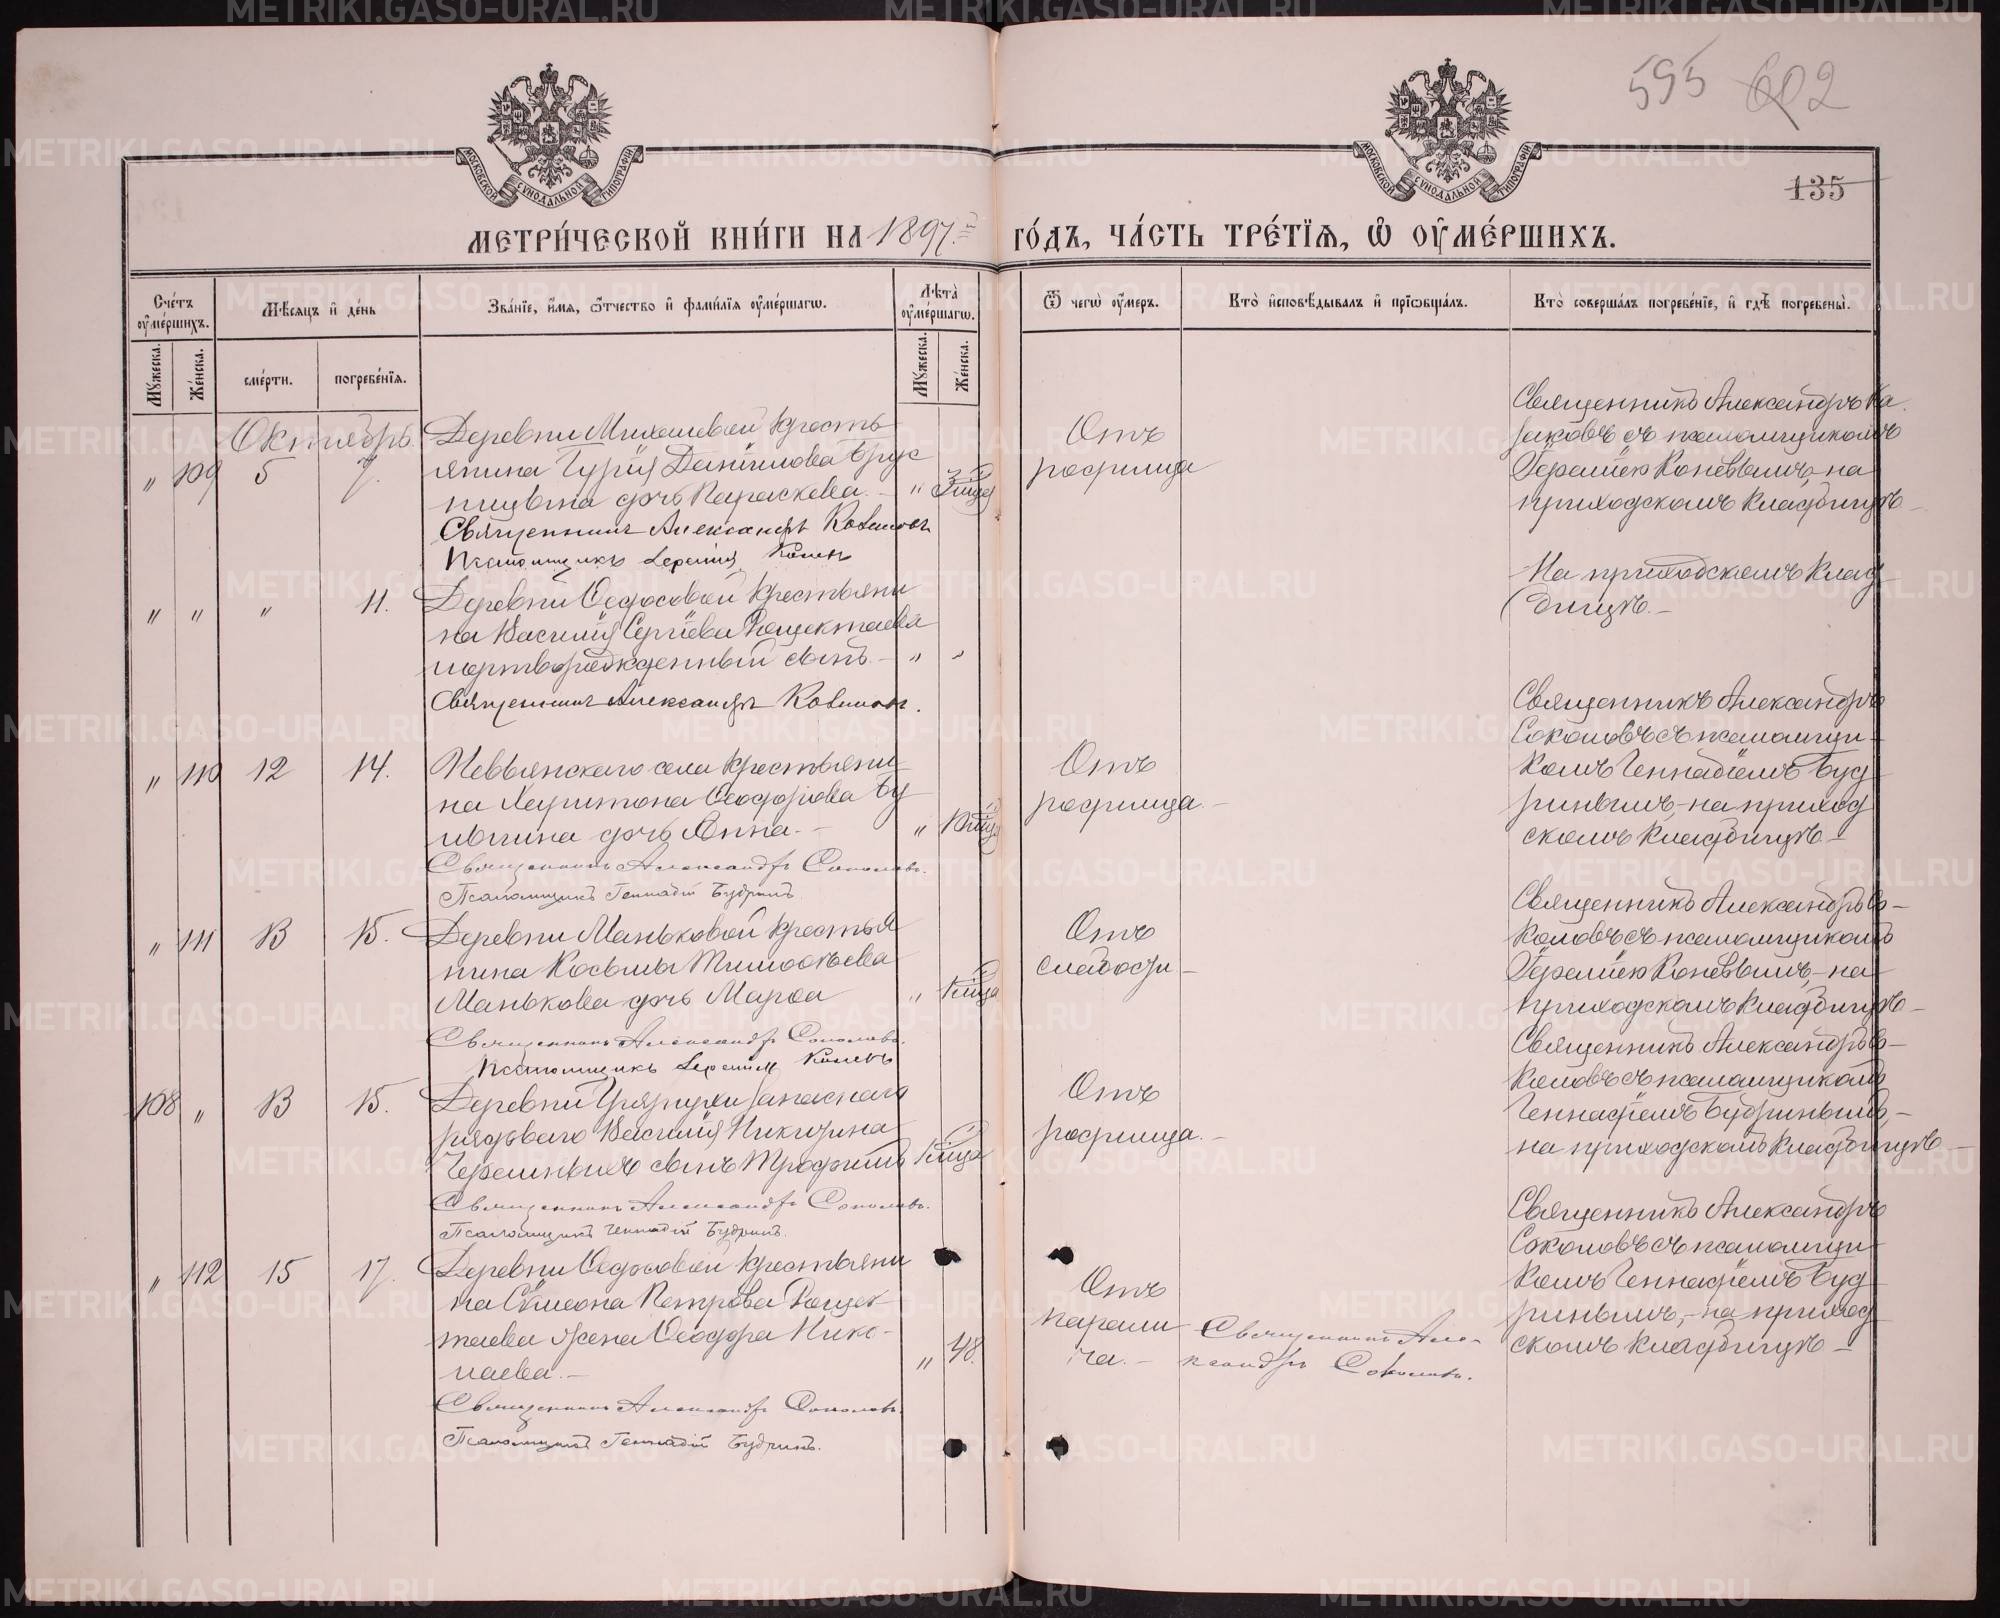 595 602
135
МОСКОВСКОЙ СѴНОДАЛЬНОЙ ТИПОГРАФІИ
МОСКОВСКОЙ СѴНОДАЛЬНОЙ ТИПОГРАФІИ
МЕТРИ́ЧЕСКОЙ КНИ́ГИ НА 1897 ГО́ДЪ, ЧА́СТЬ ТРЕ́ТІѦ, Ѿ ОУМЕ́РШИХЪ.
Сче́тъ оумершихъ.
Мужеска.
Же́нска.
Мѣсяцъ и де́нь
сме́рти.
погребе́нїѧ.
Зва́нїе, имѧ, ѻтчество и фами́лїѧ оуме́ршагѡ.
Лѣта̀ оуме́ршагѡ.
Мужеска.
Же́нска.
Ѿ чегѡ̀ оу́меръ.
Кто̀ исповѣ́дывалъ и прїѡбща́лъ.
Кто̀ соверша́лъ погребе́нїе, и гдѣ̀ погребены̀.
Октябрь.
" 109 5 7.
Деревни Михалевой кресть
янина Гурія Даніилова Брус
ницына дочь Параскева. "
Священникъ Александръ
Псаломщикъ Іеремія Коневъ
Отъ
родимца
Священникъ Александръ
съ псаломщикомъ
Іереміею Коневымъ, на
приходскомъ кладбищѣ
" " " 11.
Деревни Ѳедосовой крестьяни
на Василія Сергіева Рощектаева
мертворожденный сынъ. " "
Священникъ Александръ
На приходскомъ клад
бищѣ.
" 110 12 14.
Невьянскаго села крестьяни
на Харитона Ѳеодорова Бу
лыгина дочь Анна. "
Священникъ Александръ Соколовъ.
Псаломщикъ Геннадій Будринъ.
Отъ
родимца.
Священникъ Александръ
Соколовъ съ псаломщи
комъ Геннадіемъ Буд
ринымъ, на приход
скомъ кладбищѣ
" 111 13 15.
Деревни Маньковой крестья
нина Косьмы Тимоѳѣева
Манькова дочь Марѳа "
Священникъ Александръ Соколовъ.
Псаломщикъ Іеремія Коневъ
Отъ
слабости
Священникъ Александръ Со
коловъ съ псаломщикомъ
Іереміею Коневымъ, на
приходскомъ кладбищѣ
108 " 13 15.
Деревни запаснаго
рядоваго Василія Никитина
Черемныхъ сынъ Трофимъ
Священникъ Александръ Соколовъ.
Псаломщикъ Геннадій Будринъ.
Отъ
родимца.
Священникъ Александръ Со
коловъ съ псаломщикомъ
Геннадіемъ Будринымъ,
на приходскомъ кладбищѣ
" 112 15 17.
Деревни Ѳедосовой крестьяни
на Сѵмеона Петрова Рощек
таева жена Ѳеодора Нико
лаева. " 48.
Священникъ Александръ Соколовъ.
Псаломщикъ Геннадій Будринъ.
Отъ
парали
ча.
Священникъ Але
ксандръ Соколовъ.
Священникъ Александръ
Соколовъ съ псаломщи
комъ Геннадіемъ Буд
ринымъ, на приход
скомъ кладбищѣ
METRIKI.GASO-URAL.RU